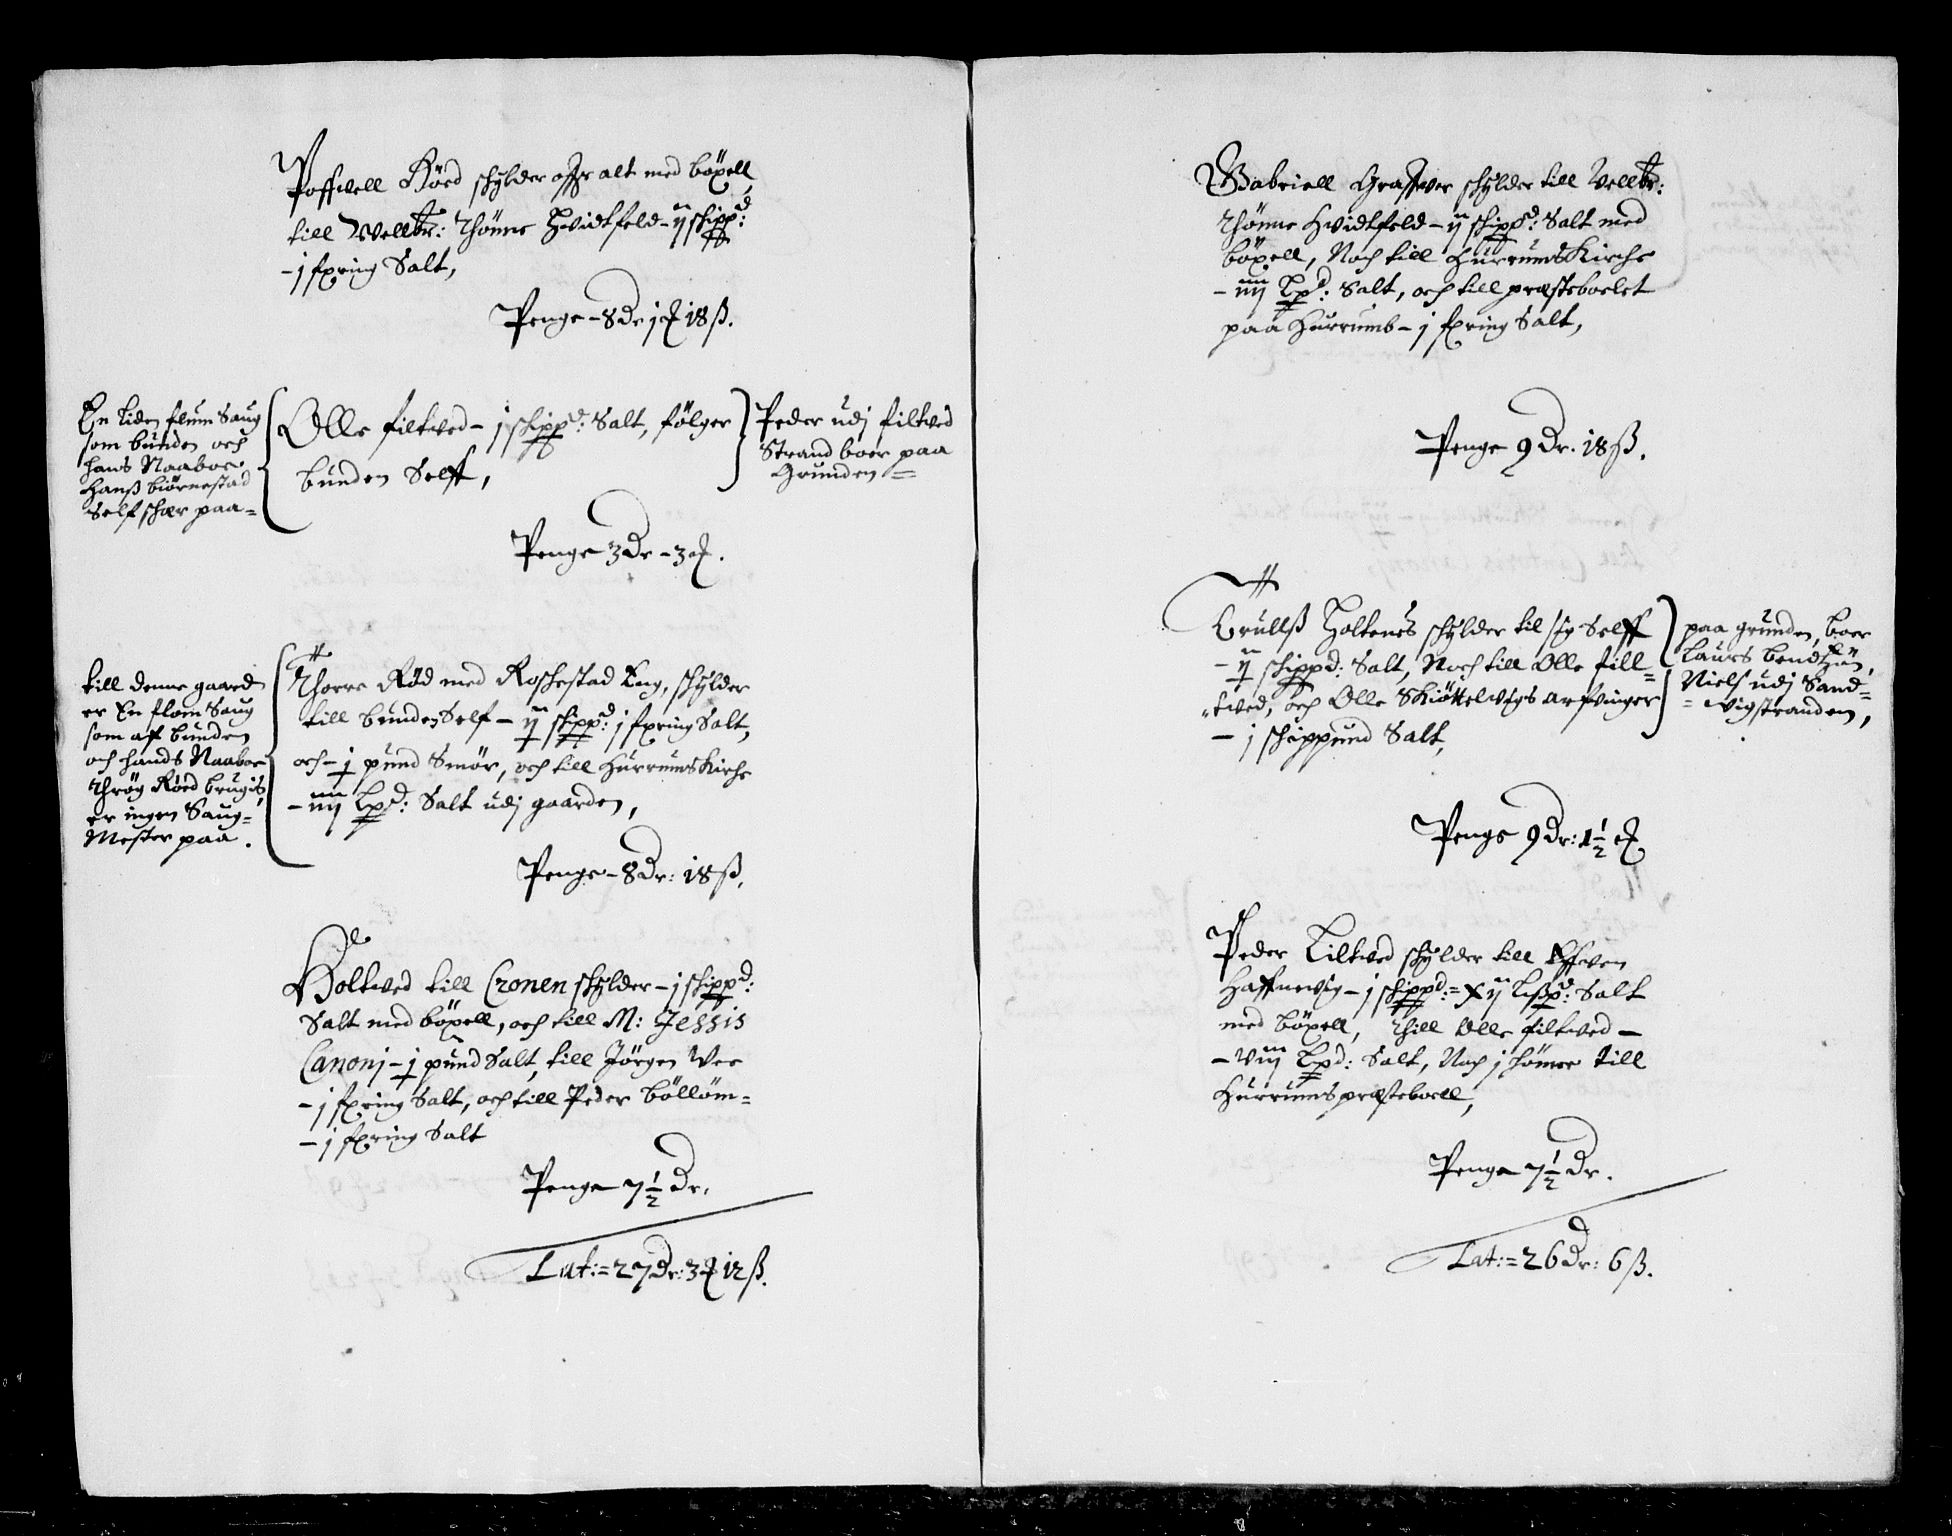 Poffwell Röed schylder offr alt med böxell
till Wellbr: Thönne Hvidtfeld - ij schippd:
- j fxring Salt,
Penge - 8 Dr j 18 ß.
En Liden flum Saug
som bunden och
hans Naaboe
Hanß biörnestad
Self schær paa =
Olle filtved - j schippd: Salt, følger
bunden Selff,
Peder udj filtved
Strand boer paa
Grunden =
Penge 3 Dr - 3
till denne gaard
er En flom Saug
som af bunden
och hands Naaboe
Thrög Röed brugis,
er ingen Saug =
Mester paa.
Thorre Röd med Roskestad Eng, schylder
till bunden Self - ij schippd: j fxring Salt,
och - j pund Smör, och till Hurrums Kirche
- iiij Lpd: Salt udj gaarden,
Penge - 8 Dr: 18 ß.
Holtved till Cronen schylder - j schippd:
Salt med böxell, och till M: Jessis
Canonj - j pund Salt, till Jörgen Wee
- j fxring Salt, och till Peder böllöm =
- j fxring Salt
Penge 7 1/2 Dr.
Lat: = 27 Dr: 3 12 ß.
Gabriell Graffwer schylder till Vellbr:
Thönne Hvidtfeld - ij schippd: Salt med
böxell, Noch till Hurrums Kirche
- iiij Lpd: Salt, och till præsteboelet
paa Hurrumb - j fxring Salt,
Penge 9 Dr. 18 ß.
Trullß Holtenes schylder til sig Selff
- ij schippd: Salt, Noch till Olle fill =
tved, och Olle Skiöttelvigs arfvinger
- j schippund Salt,
paa grunden, boer
Laurs bendtzön,
Niels udj Sand =
= vigstranden,
Penge 9 Dr: 1 1/2
Peder Tiltved schylder till Effven
Haffnevig - j schippd: = xij Lißpd: Salt
med böxell, Thill Olle filtved -
- viij Lpd: Salt, Noch j hömre till
Hurrums præsteboell,
Penge 7 1/2 Dr.
Lat: = 26 Dr: 6 ß.